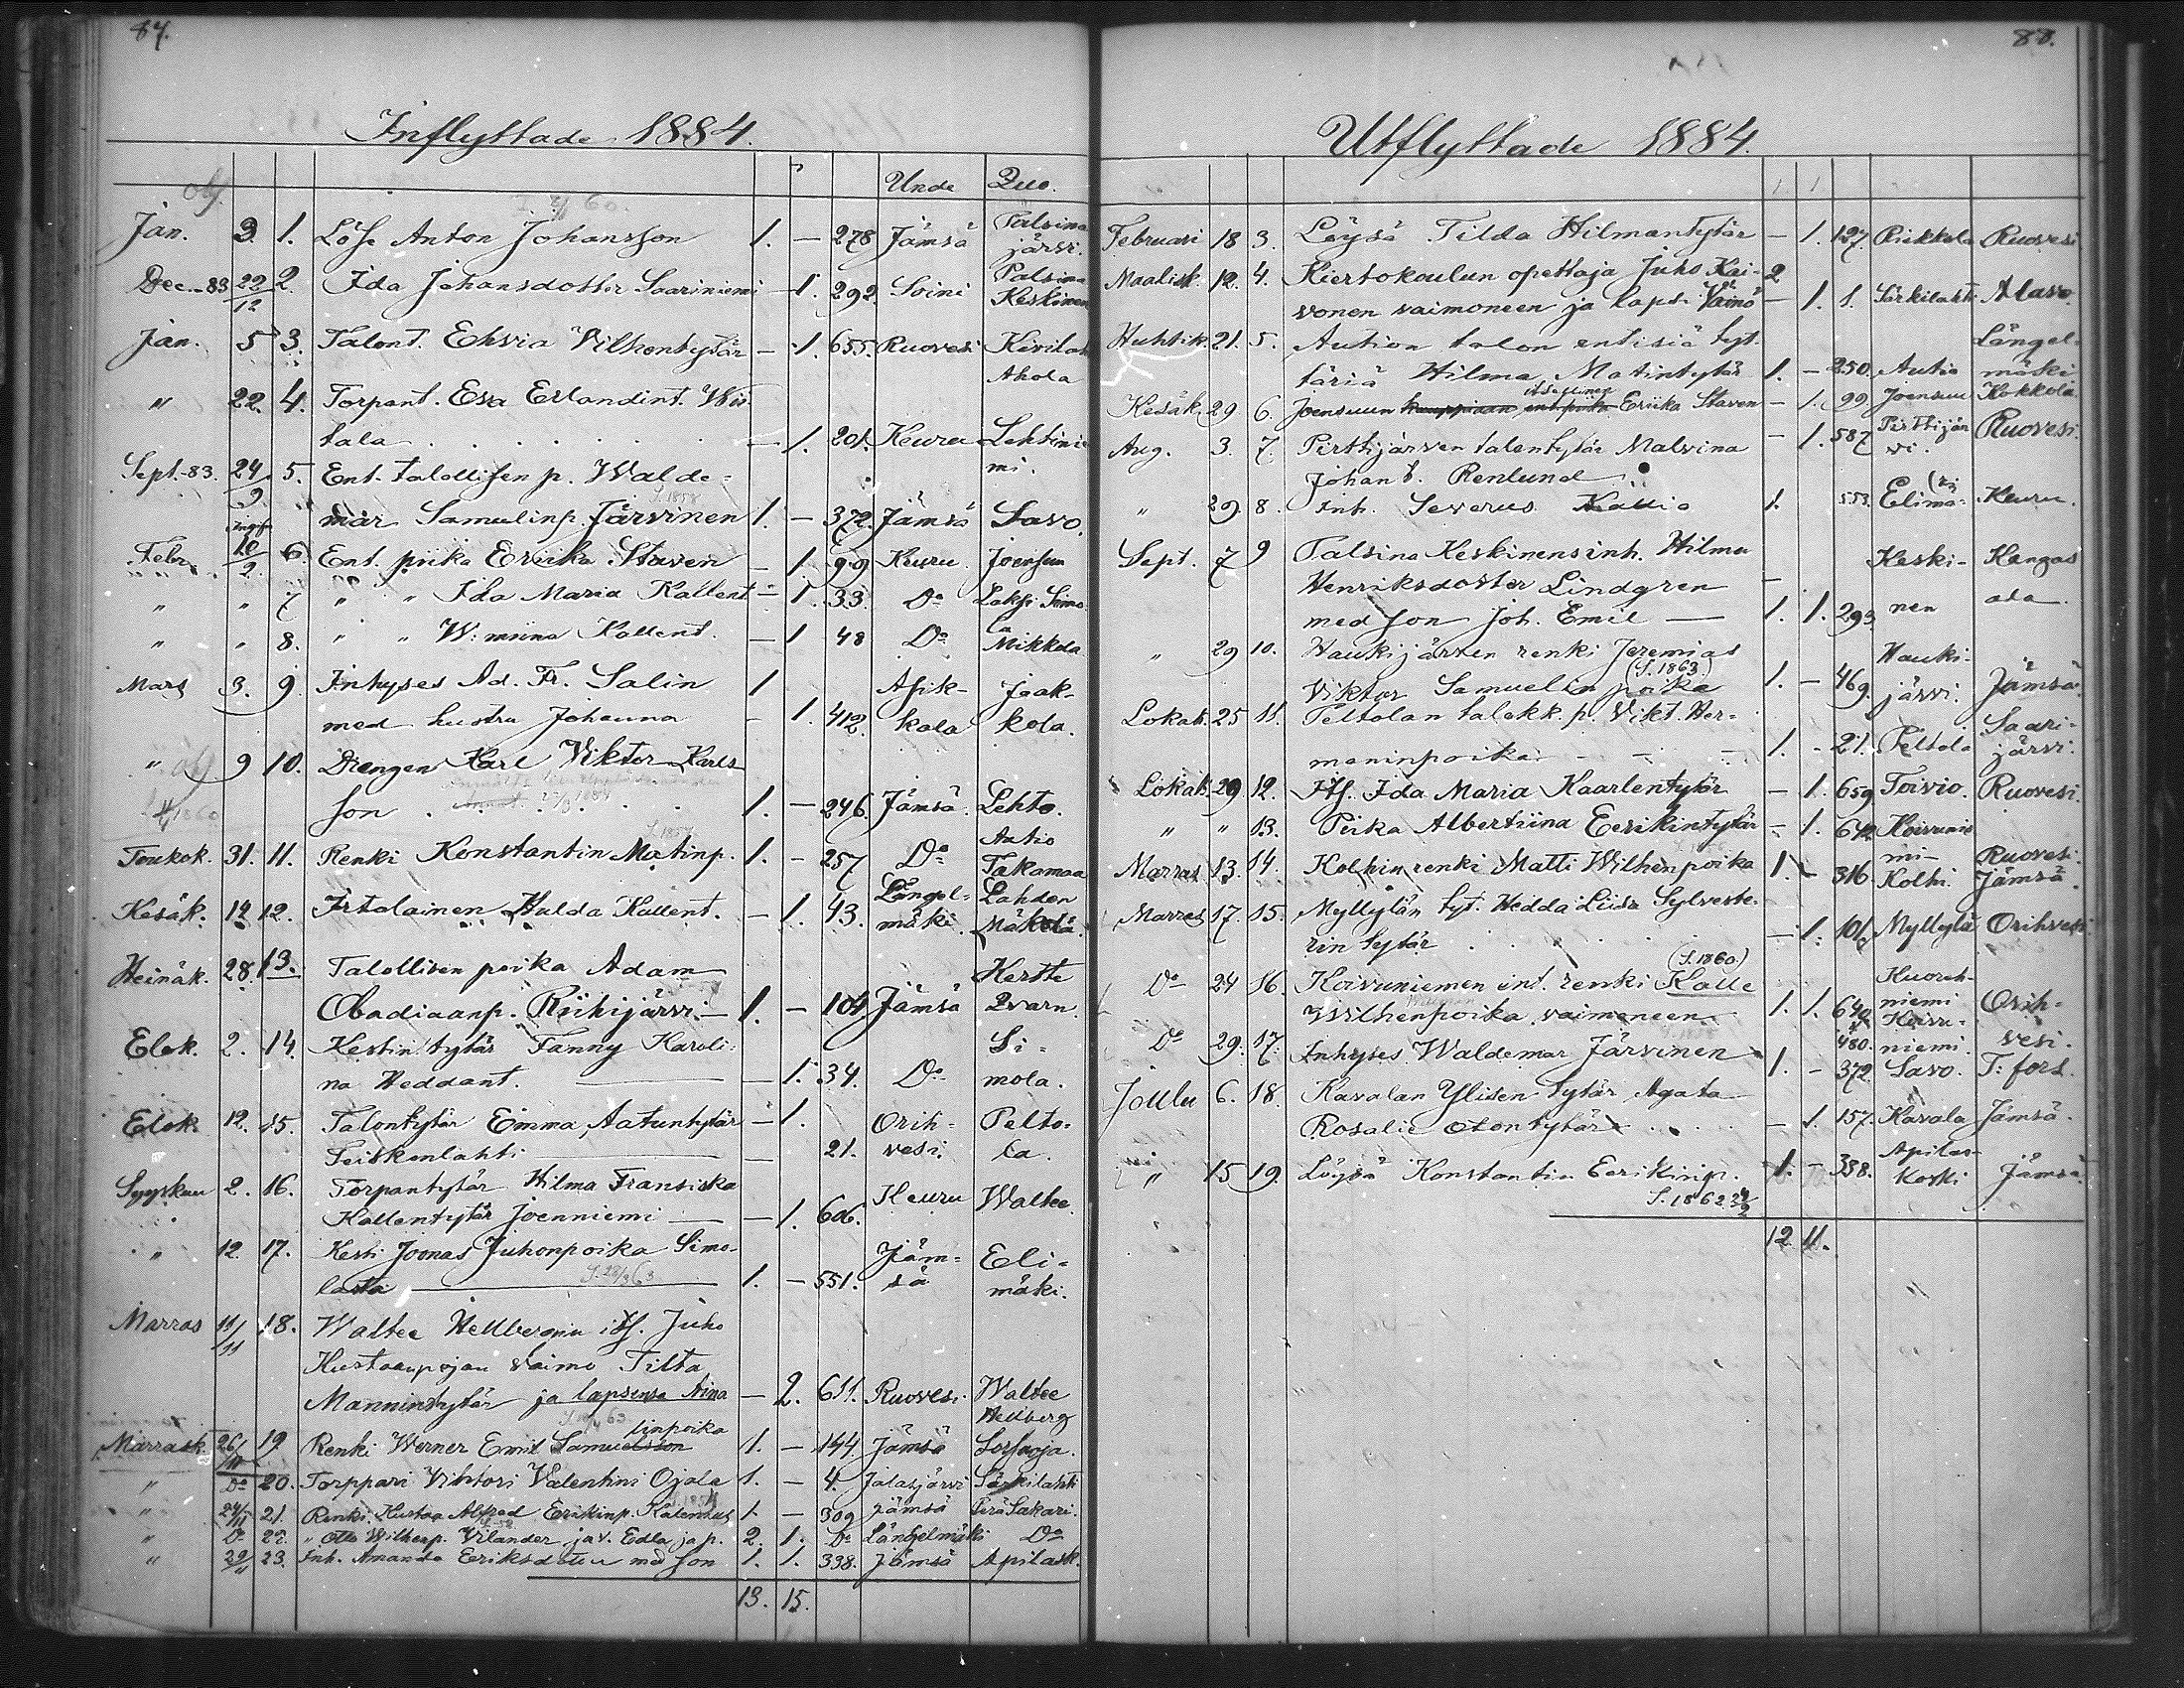 87.
Inflyttade 1884.
Unde Quo.
Jan. 3. 1. Lösk. Anton Johansson 1. — 278 Jämsä Talsina järvi.
Dec. 83 22/12 2. Ida Johansdotter Saariniemi — 1. 292. Soini Talsina Keskinen
Jan. 5 3. Talont. Edvia Vilhontytär — 1. 655. Ruovesi Kivilah Ahola
" 22. 4. Torpant. Eva Erlandint. Wis
tala . . . . . . — 1. 201. Keuru Lehtinie
mi.
Sept.-83. 24/9 5. Ent. talollisen p. Walde-
mar Samulinp. Järvinen 1. — 372. Jämsä Savo.
S. 1858
Febr. 10/2. 6. Ent. piika Eriika Staven — 1. 99 Keuru. Joensuu
" " 7 " " Ida Maria Kallent — 1. 33. Do Laksi Simo
la
" " 8. " " W:miina Kallent. — 1 48 Do Mikkola
Mars 3. 9. Inhyses Ad. Fr. Salin 1
med hustru Johanna — 1. 412. Asik-kala Jaak-kola.
" 9 10. Drengen Karl Viktor Karls-
son . . . . 1. — 246. Jämsä. Lehto.
Toukok. 31. 11. Renki Konstantin Matinp. 1. — 257 Do Autio Takamaa
Kesäk. 14 12. Itstolainen Hulda Kallent. — 1. 43. Längel-mäki. Lahden Mäkelä.
Heinäk. 28. 13. Talollisen poika Adam
Obadiaanp. Riihijärvi — 1. — 104 Jämsä Kertte Qvarn.
Elok. 2. 14. Kestin tytär Fanny Karoli-
na Heddant. — 1. 34. Do Si-mola.
Elok. 12. 15. Talontytär Emma Aatuntytär — 1.
Teiskonlahti — 21. Orih-vesi. Pelto-la.
Syyskuu 2. 16. Torpantytär Hilma Fransiska
Kallentytär Joenniemi — 1. 606. Keuru Waltee.
" 12. 17. Kesti Joonas Juhonpoika Simo-
lasta 1. — 551. Jäm-sä Eli-mäki.
Marras 11/11 18. Waltee Hellbergin its. Juho
Kustaanpojan vaimo Tilta
Mannintytär ja lapsensa Aina — 2. 611. Ruovesi. Waltee Hellberg
linpoika
Marrask. 26/10 19 Renki Werner Emil Samuelsson 1. — 144. Jämsä Sorsuoja.
" Do 20. Torppari Viktori Valentini Ojala 1. — 4. Jalasjärvi Särkilahti
" 24/11 21. Renki Kustaa Alfred Eerikinp. Kalenius 1 — 309 Jämsä Perä Sakari.
" Do 22. " Otto Wilhenp. Vilander ja v. Edla ja p. 2. 1. Do Längelmäki Do
" 29/11 23. Inh. Amanda Eeriksdotter med son 1. 1. 338. Jämsä Apilask.
13. 15.
88.
Utflyttade 1884.
Februari 18 3. Löysä Tilda Hilmantytär — 1. 127. Riekkola Ruovesi
Maalisk. 12. 4. Kiertokoulun opettaja Juho Kai- 2
vonen vaimoneen ja lapsi Väinö — 1. 1. Särkilahti Alavo.
Huhtik. 21. 5. Aution talon entisiä tyt-
täriä Hilma Matintytär 1. — 250. Autio Längel-mäki
itsellinen
Kesäk. 29 6. Joensuun kauppiaan ent. piika Eriika Staven — 1. 99. Joensuu Kokkola
Aug. 3. 7. Perttijärven talontytär Malvina — 1. 587 Perttijär vi. Ruovesi.
Johan t. Renlund
" 29 8. Inh. Severus Kallio 1. 553. Elimä-(ki Keuru.
Sept. 7 9 Talsina Keskinens inh. Hilma
Henriksdotter Lindgren —
med son Joh. Emil — 1. 1. 293. Keski-nen Kangas ala
" 29 10. Haukijärven renki Jeremias
(S. 1863)
Viktor Samuelin poika 1. — 469. Hauki-järvi. Jämsä.
Lokak. 25 11. Peltolan talokk. p. Vikt. Her-
maninpoika — — 1. - 21. Peltola Saari-järvi.
Lokak. 29 12. Its. Ida Maria Kaarlentytär — 1. 659 Toivio. Ruovesi.
" " 13. Piika Albertiina Eerikintytär — 1. 642 Koivunie mi — Ruovesi.
Marras 13. 14. Kolhin renki Matti Wilhenpoika 1. — 316 Kolhi. Jämsä.
Marras 17. 15. Myllylän tyt. Hedda Liisa Sylveste-
rin tytär . . . — 1. 101 Myllylä Orihvesi
(S. 1860.)
Do 24 16. Koivuniemen ent. renki Kalle
Wilhenpoika vaimoneen 1. 1. 640 480. Kuoreh-niemi Koivu-niemi. Orih-vesi.
Do 29. 17. Inhyses Waldemar Järvinen 1. — 372 Savo. T:fors.
Joulu 6. 18. Kavalan Ylisen tytär Agata
Rosalie Otontytär . . . . — 1. 157. Kavala Jämsä.
" 15 19. Löysä Konstantin Eerikinp. 1. — 338. Apilas-koski Jämsä.
S. 1862 24/2
12 11.